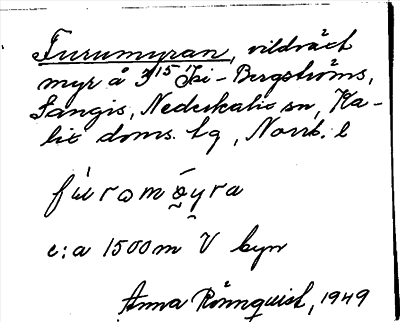 Furumyran, vildväxt
myr å 3/15 Isi-Bergströms,
Sangis, Nederkalix sn, Ka-
lix doms. lg, Norrb. l
fùromǿyra
c:a 1500 m V byn
Anna Rönnquist, 1949